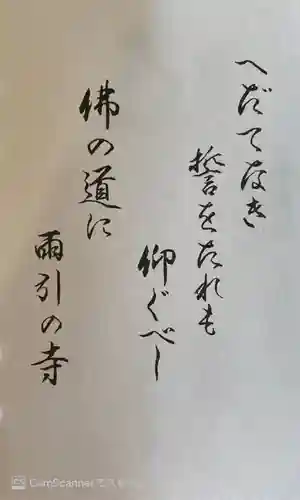 へだてなき
誓をたれも
仰ぐべし
佛の道に
雨引の寺
CamScanner